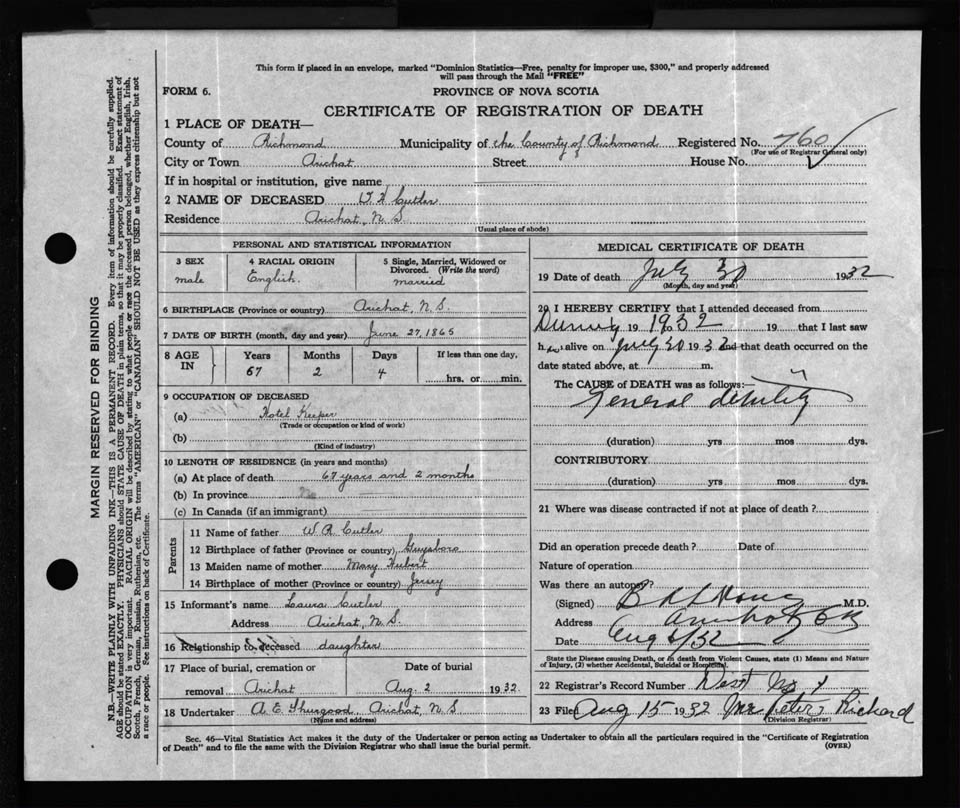 This form if placed in an envelope, marked "Dominion Statistics—Free, penalty for improper use, $300," and properly addressed
will pass through the Mail "FREE"
FORM 6.
PROVINCE OF NOVA SCOTIA
CERTIFICATE OF REGISTRATION OF DEATH
1 PLACE OF DEATH—
County of Richmond Municipality of the County of Richmond Registered No. 760
(For use of Registrar General only)
City or Town Arichat Street House No.
If in hospital or institution, give name
2 NAME OF DECEASED Cutler
Residence Arichat, N. S.
(Usual place of abode)
PERSONAL AND STATISTICAL INFORMATION
3 SEX 4 RACIAL ORIGIN 5 Single, Married, Widowed or Divorced. (Write the word)
male English. married
6 BIRTHPLACE (Province or country) Arichat, N. S.
7 DATE OF BIRTH (month, day and year) June 27, 1865
8 AGE IN Years Months Days If less than one day,
67 2 4 hrs. or min.
9 OCCUPATION OF DECEASED
(a) Hotel Keeper
(Trade or occupation or kind of work)
(b)
(Kind of industry)
10 LENGTH OF RESIDENCE (in years and months)
(a) At place of death 67 years and 2 months
(b) In province
(c) In Canada (if an immigrant)
Parents
11 Name of father W. R. Cutler
12 Birthplace of father (Province or country) Guysboro
13 Maiden name of mother Mary Hubert
14 Birthplace of mother (Province or country) Jersey
15 Informant's name Laura Cutler
Address Arichat, N. S.
16 Relationship to deceased daughter
17 Place of burial, cremation or Date of burial
removal Arichat Aug. 2 1932.
18 Undertaker A. E. Thurgood Arichat, N. S
(Name and address)
MEDICAL CERTIFICATE OF DEATH
19 Date of death July 30 1932
(Month, day and year)
20 I HEREBY CERTIFY that I attended deceased from
During 19 1932 to 19 that I last saw
him alive on July 30 1932 and that death occurred on the
date stated above, at m.
The CAUSE of DEATH was as follows:—
General debility
(duration) yrs mos dys.
CONTRIBUTORY
(duration) yrs mos dys.
21 Where was disease contracted if not at place of death?
Did an operation precede death? Date of
Nature of operation
Was there an autopsy?
(Signed) M.D.
Address
Date Aug 6/32
State the Disease causing Death, or in death from Violent Causes, state (1) Means and Nature
of Injury, (2) whether Accidental, Suicidal or Homicidal.
22 Registrar's Record Number Dist No
23 Filed Aug 15 1932 Mr Peter J Richard
(Division Registrar)
Sec. 46—Vital Statistics Act makes it the duty of the Undertaker or person acting as Undertaker to obtain all the particulars required in the "Certificate of Registration
of Death" and to file the same with the Division Registrar who shall issue the burial permit. (OVER)
MARGIN RESERVED FOR BINDING
N.B.—WRITE PLAINLY WITH UNFADING INK—THIS IS A PERMANENT RECORD. Every item of information should be carefully supplied.
AGE should be stated EXACTLY. PHYSICIANS should STATE CAUSE OF DEATH in plain terms, so that it may be properly classified. Exact statement of
OCCUPATION is very important. RACIAL ORIGIN will be described by stating to what people or race the deceased person belonged, whether English, Irish,
Scotch, French, German, Russian, Ruthenian, etc. The terms "AMERICAN" or "CANADIAN" SHOULD NOT BE USED as they express citizenship but not
a race or people. See instructions on back of Certificate.